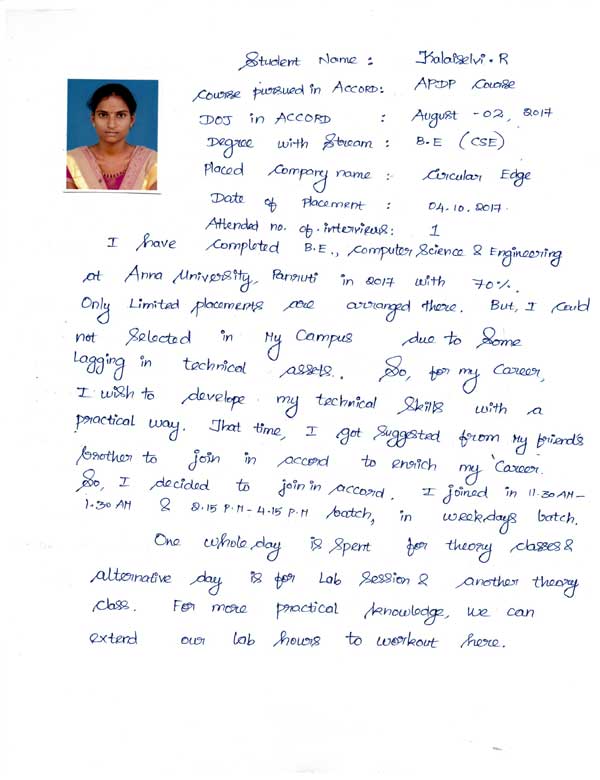 Student Name : Kalaiselvi.R
Course pursued in ACCORD: APDP Course
DOJ in ACCORD : August -02, 2017
Degree with Stream : B.E (CSE)
Placed Company name : Circular Edge
Date of Placement : 04.10.2017.
Attended no. of interviews: 1
I have completed B.E., Computer Science & Engineering
at Anna University, Panruti in 2017 with 70%.
Only Limited placements are arranged there. But, I could
not selected in My Campus due to Some
Lagging in technical assets. So, for my Career,
I wish to develope my technical Skills with a
practical way. That time, I got Suggested from My friends
brother to join in accord to enrich my Career.
So, I decided to join in accord. I joined in 11.30 AM-
1.30 AM & 2.15 P.M - 4.15 P.M batch, in weekdays batch.
One whole day is Spent for theory classes &
alternative day is for Lab Session & another theory
class. For more practical knowledge, we can
extend our lab hours to workout here.